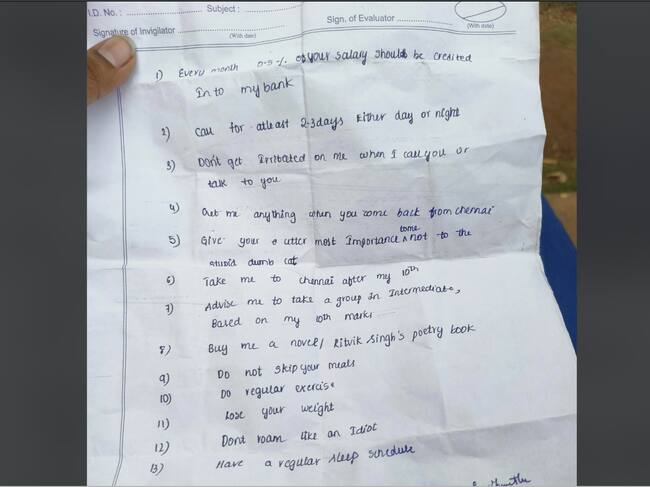 I.D. No. : .................... Subject : ....................
Signature of Invigilator .................... Sign. of Evaluator ....................
(With date) (With date)
1) Every month 0-5 % of your salary should be credited
In to my bank
2) Call for atleast 2-3 days Either day or night
3) Don't get Irritated on me when I call you or
talk to you
4) Get me anything when you come back from chennai
5) Give your utter most Importance to me not to the
stupid dumb cat
6) Take me to chennai after my 10th
7) Advise me to take a group In Intermediate,
Based on my 10th marks
8) Buy me a novel / Ritvik Singh's poetry book
9) Do not skip your meals
10) Do regular exercise
11) Lose your weight
12) Dont roam like an Idiot
13) Have a regular sleep schedule